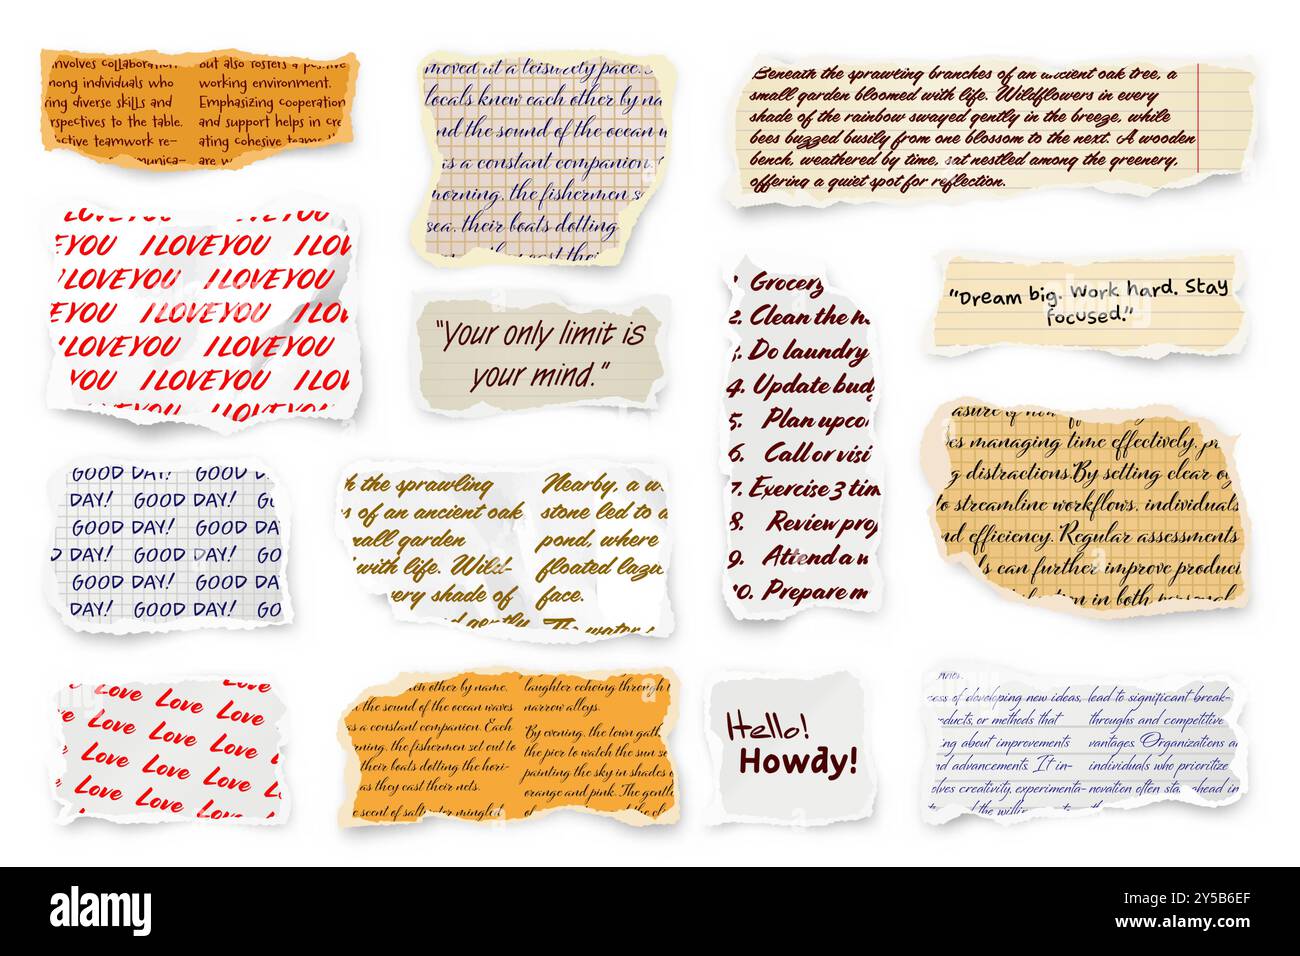 involves collaboration
among individuals who
ring diverse skills and
rspectives to the table.
ective teamwork re-
mmunica-
but also fosters a positive
working environment.
Emphasizing cooperation
and support helps in cre
ating cohesive teams
are w
moved at a leisurely pace.
locals knew each other by na
nd the sound of the ocean w
is a constant companion.
morning, the fishermen se
sea, their boats dotting
Beneath the sprawling branches of an ancient oak tree, a
small garden bloomed with life. Wildflowers in every
shade of the rainbow swayed gently in the breeze, while
bees buzzed busily from one blossom to the next. A wooden
bench, weathered by time, sat nestled among the greenery,
offering a quiet spot for reflection.
LOVEYOU ILOVEYOU
EYOU ILOVEYOU ILOV
'LOVEYOU ILOVEYOU
EYOU ILOVEYOU ILOV
'LOVEYOU ILOVEYOU
YOU ILOVEYOU ILOV
ILOVEYOU ILOVEYOU
"Your only limit is
your mind."
1. Grocery
2. Clean the ho
3. Do laundry
4. Update budg
5. Plan upcor
6. Call or visi
7. Exercise 3 tim
8. Review proj
9. Attend a w
10. Prepare m
"Dream big. Work hard. Stay
focused."
asure of how
es managing time effectively, pr
g distractions By setting clear
to streamline workflows, individuals
nd efficiency. Regular assessments
ls can further improve product
in both personal
GOOD DAY! GOOD DAY!
DAY! GOOD DAY! GO
GOOD DAY! GOOD DA
D DAY! GOOD DAY! GO
GOOD DAY! GOOD DA
DAY! GOOD DAY! GO
h the sprawling
s of an ancient oak
mall garden
with life. Wild-
very shade of
d gently
Nearby, a w
stone led to a
pond, where
floated lazi
face.
The water
Love
Love Love Love
e Love Love Love
Love Love Love L
e Love Love Love
Love Love Love L
ch other by name,
the sound of the ocean waves
as a constant companion. Each
rning, the fishermen set out to
their boats dotting the hori-
as they cast their nets.
e scent of saltwater mingled
laughter echoing through t
narrow alleys.
By evening, the town gath
the pier to watch the sun se
painting the sky in shades o
orange and pink. The gentle
Hello!
Howdy!
cess of developing new ideas,
oducts, or methods that
ing about improvements
nd advancements. It in-
olves creativity, experimenta-
d the willin
lead to significant break-
throughs and competitive
vantages. Organizations a
individuals who prioritize
novation often stay ahead in
alamy
Image ID: 2Y5B6EF
www.alamy.com